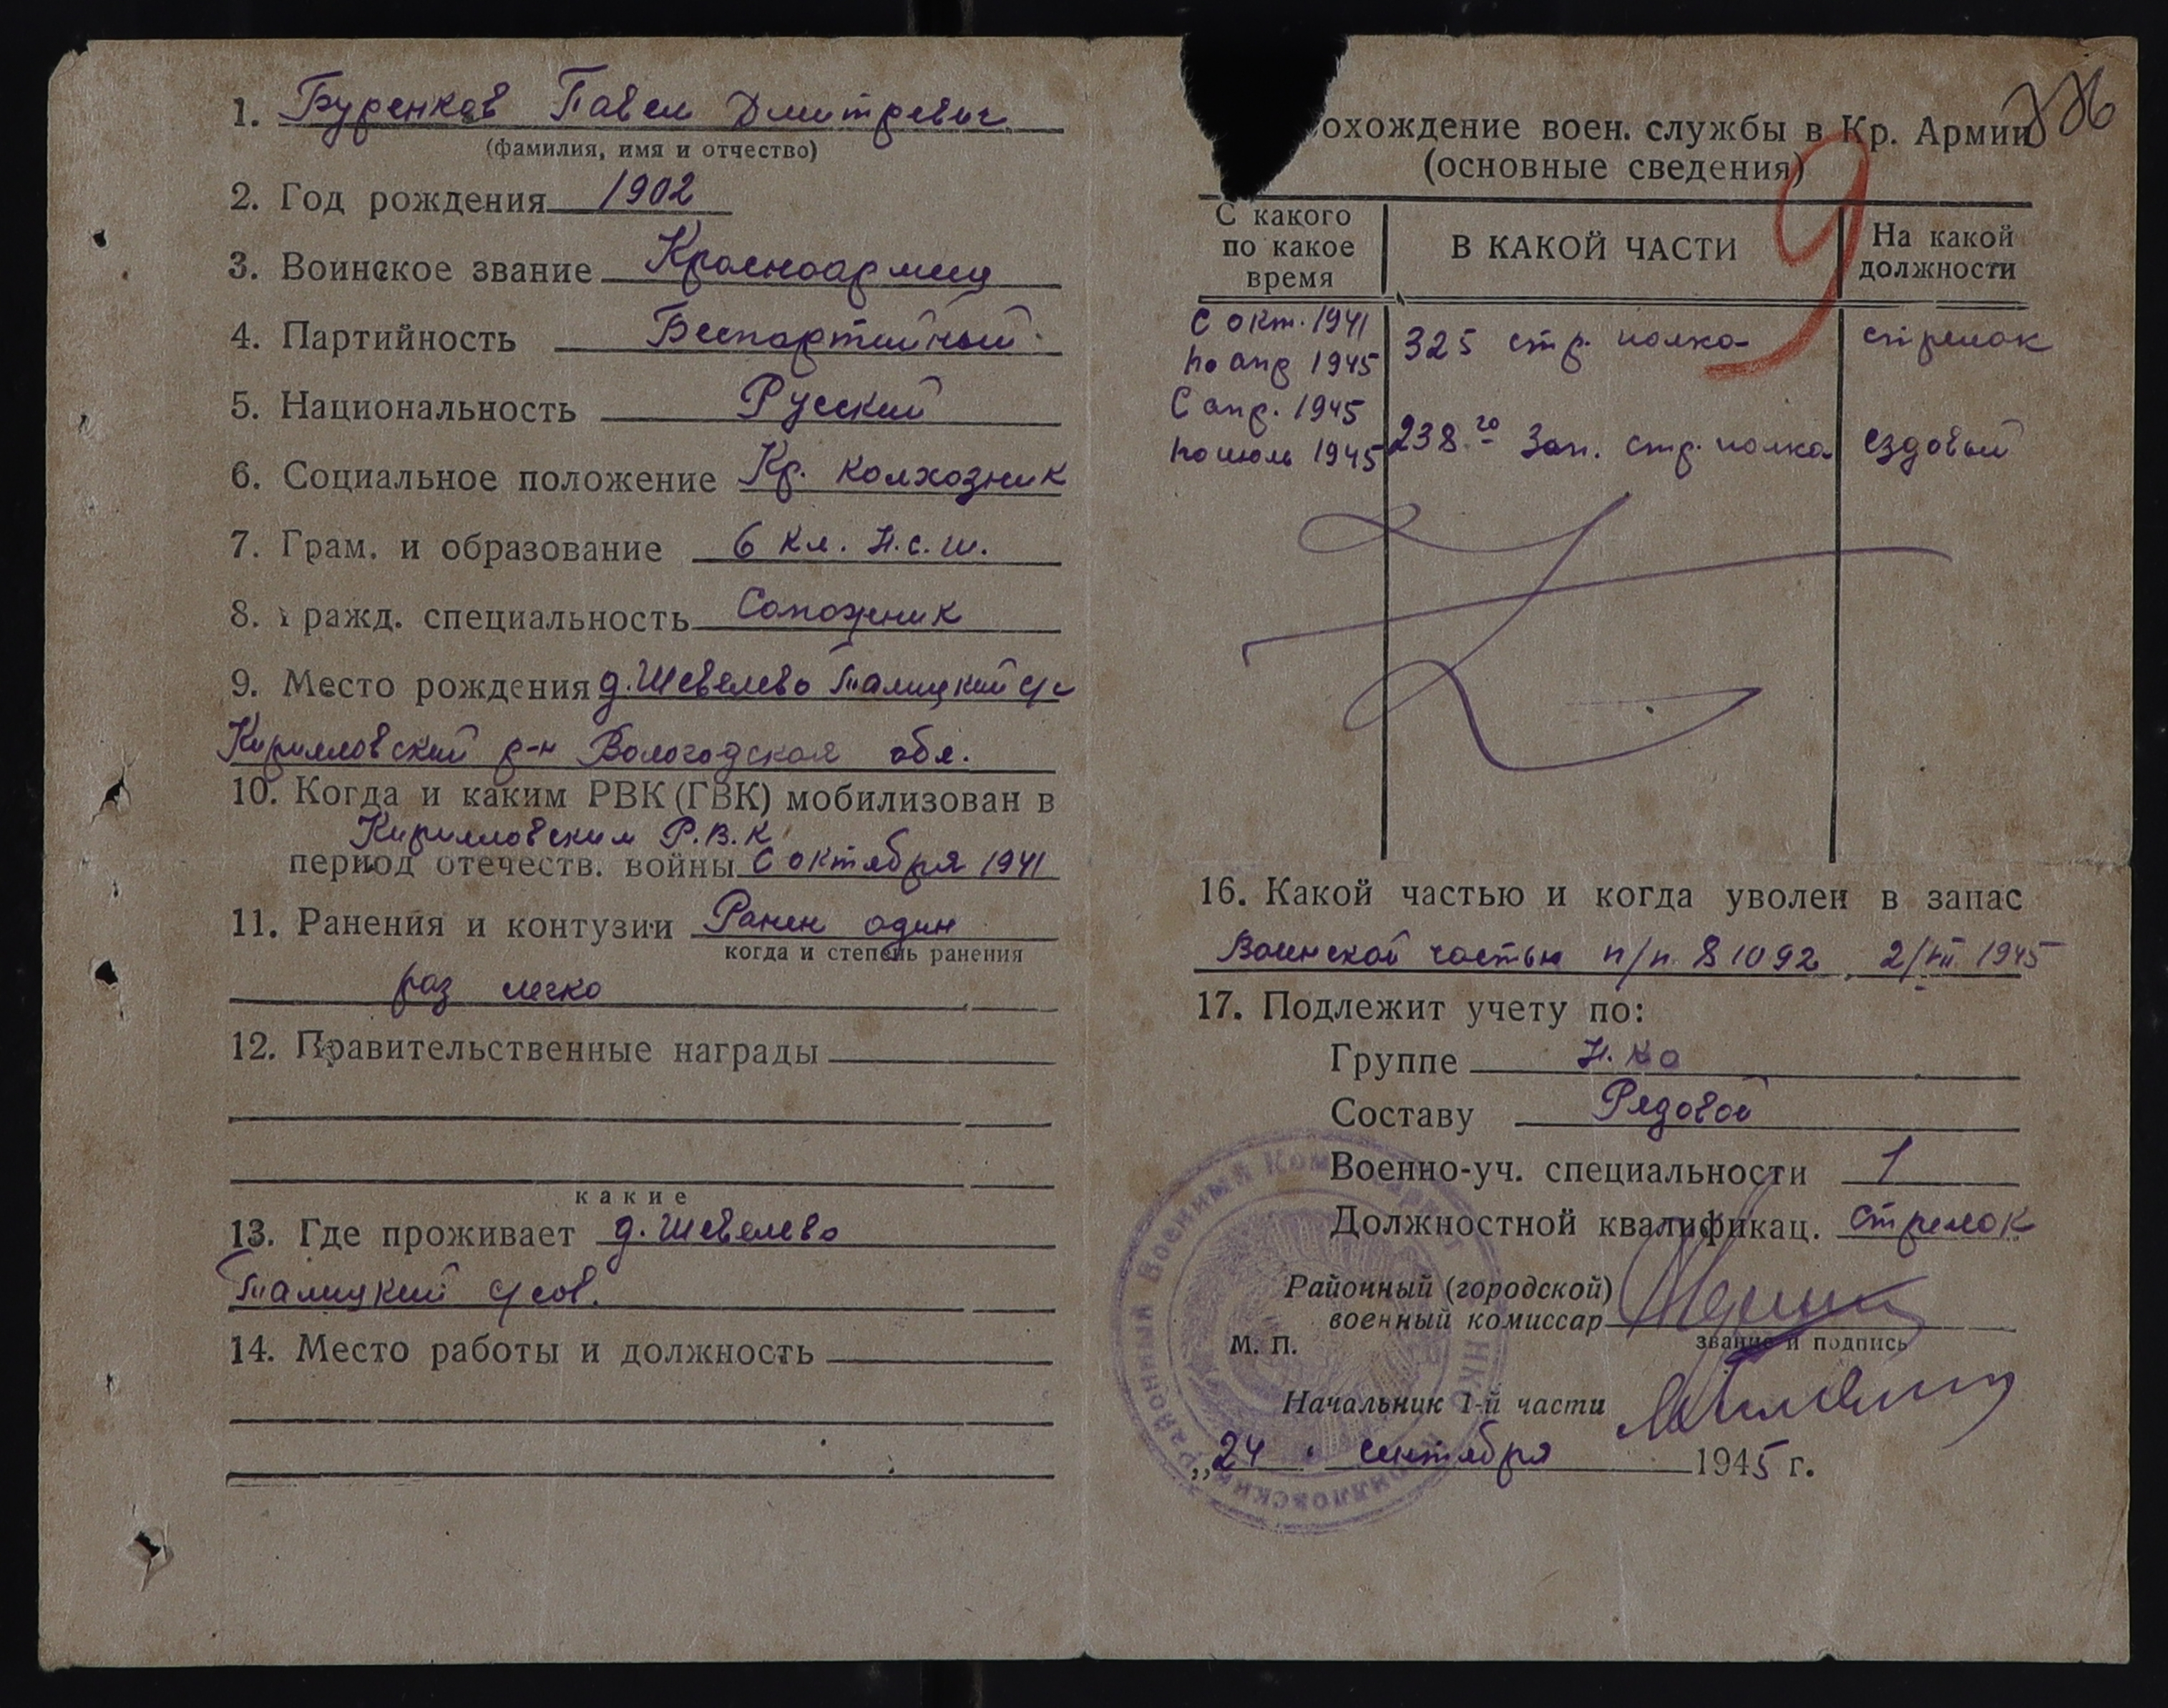 1. Буренков Павел Дмитревич
(фамилия, имя и отчество)
2. Год рождения 1902
3. Воинское звание Красноармеец
4. Партийность Беспартийный
5. Национальность Русский
6. Социальное положение Кр. колхозник
7. Грам. и образование 6 кл. Н.с.ш.
8. Гражд. специальность Сапожник
9. Место рождения д. Шевелево Талицкий с/с
Кирилловский р-н Вологодская обл.
10. Когда и каким РВК (ГВК) мобилизован в
Кирилловским Р.В.К.
период отечеств. войны С октября 1941
11. Ранения и контузии Ранен один
когда и степень ранения
раз легко
12. Правительственные награды
какие
13. Где проживает д. Шевелево
Талицкий с/сов.
14. Место работы и должность
охождение воен. службы в Кр. Армии
(основные сведения)
9
С какого по какое время
В КАКОЙ ЧАСТИ
На какой должности
С окт. 1941 по апр 1945 325 стр. полка стрелок
С апр. 1945 по июль 1945 238го Зап. стр. полка ездовый
16. Какой частью и когда уволен в запас
Воинской частью п/п. 81092, 2/VII 1945
17. Подлежит учету по:
Группе Н. ка
Составу Рядовой
Военно-уч. специальности 1
Должностной квалификац. Стрелок
Районный (городской)
военный комиссар
звание и подпись
М. П.
Начальник 1-й части
„24" сентября 1945 г.
Кирилловский Районный Военный Комиссариат НКО